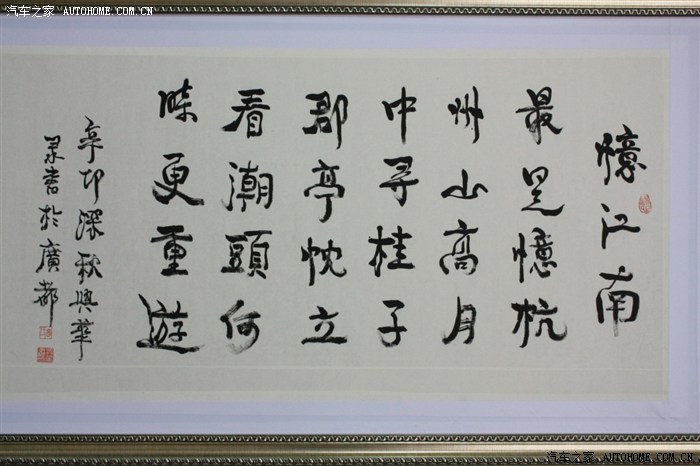 汽车之家 AUTOHOME.COM.CN
憶江南
最是憶杭
州山高月
中寻桂子
郡亭忱立
看潮頭何
時更重游
辛卯深秋興華
录書於廣都
汽车之家 AUTOHOME.COM.CN